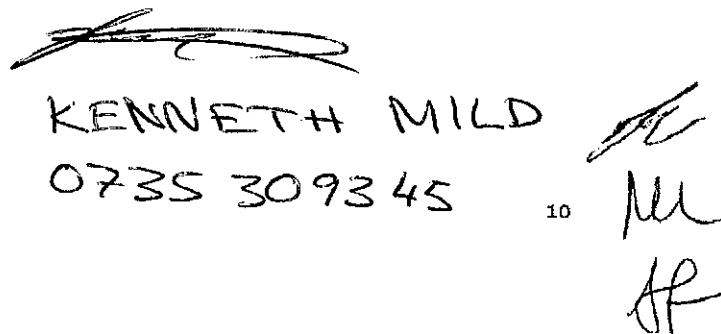 KENNETH MILD
0735 309345
10